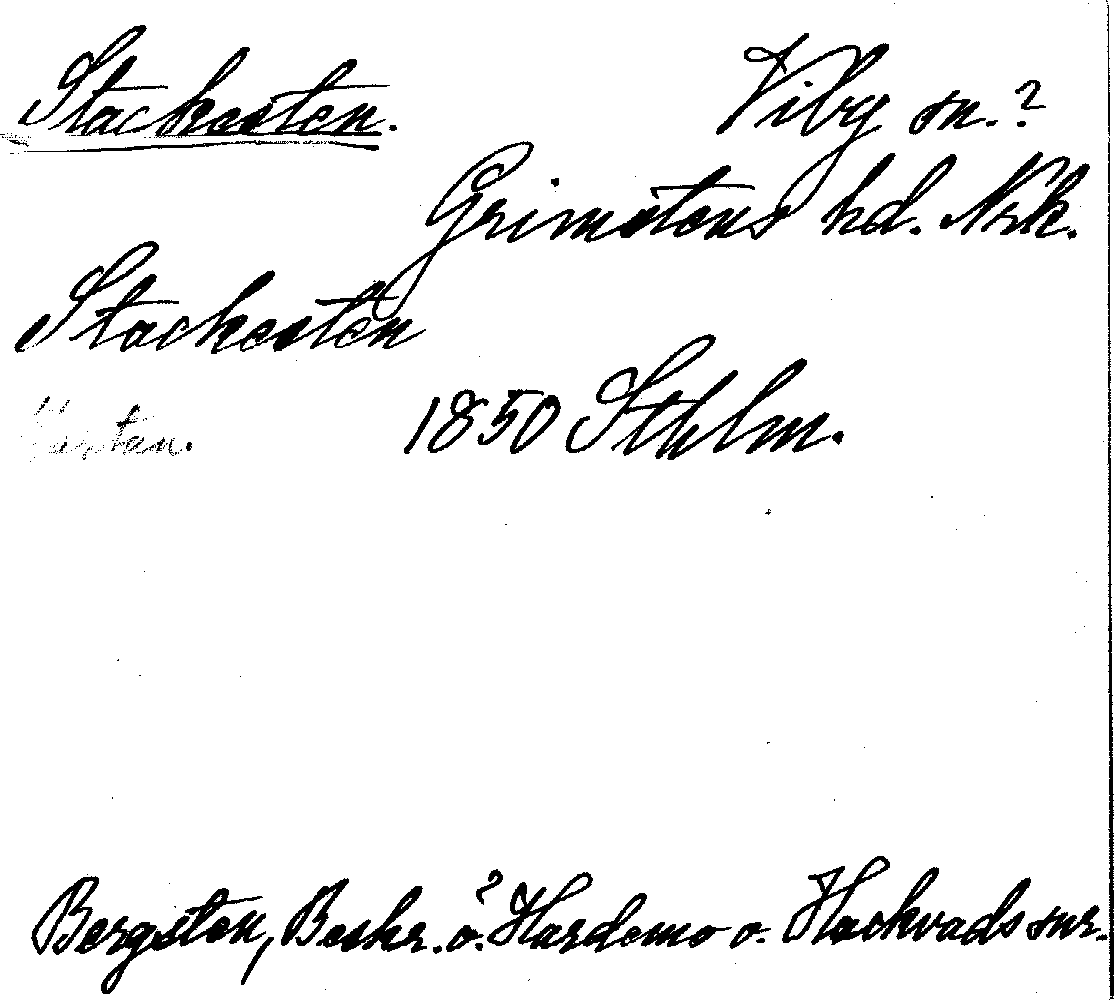 Stackesten. Viby sn.?
Grimstens hd. Nrk.
Stackesten
1850 Sthlm.
Bergsten, Beskr. o. Hardemo o. Hackvads snr.